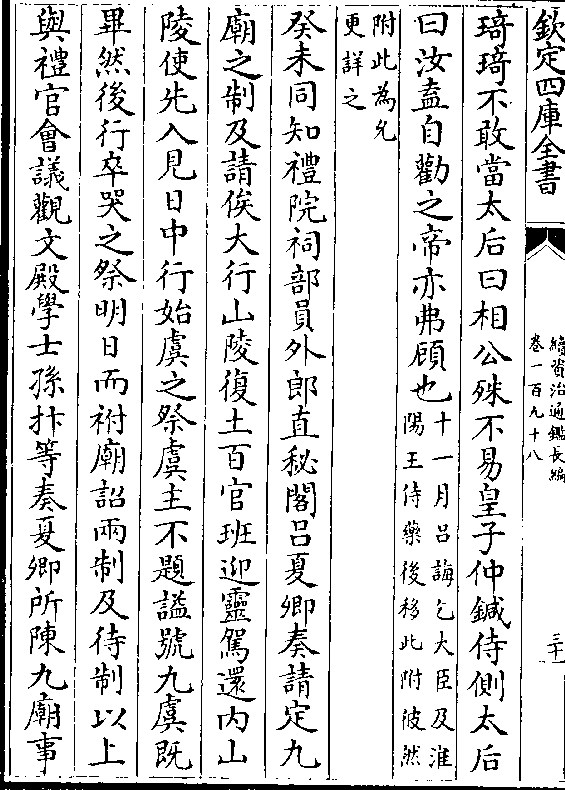 欽定四庫全書
續資治通鑑長編
卷一百九十八
三十一
琦琦不敢當太后曰相公殊不易皇子仲鍼侍側太后
曰汝盍自勸之帝亦弗顧也
十一月呂誨乞大臣及淮
陽王侍藥後移此附彼然
附此為允
更詳之
癸未同知禮院祠部員外郎直秘閣呂夏卿奏請定九
廟之制及請俟大行山陵復土百官班迎靈駕還内山
陵使先入見日中行始虞之祭虞主不題謚號九虞既
畢然後行卒哭之祭明日而祔廟詔兩制及待制以上
與禮官會議觀文殿學士孫抃等奏夏卿所陳九廟事